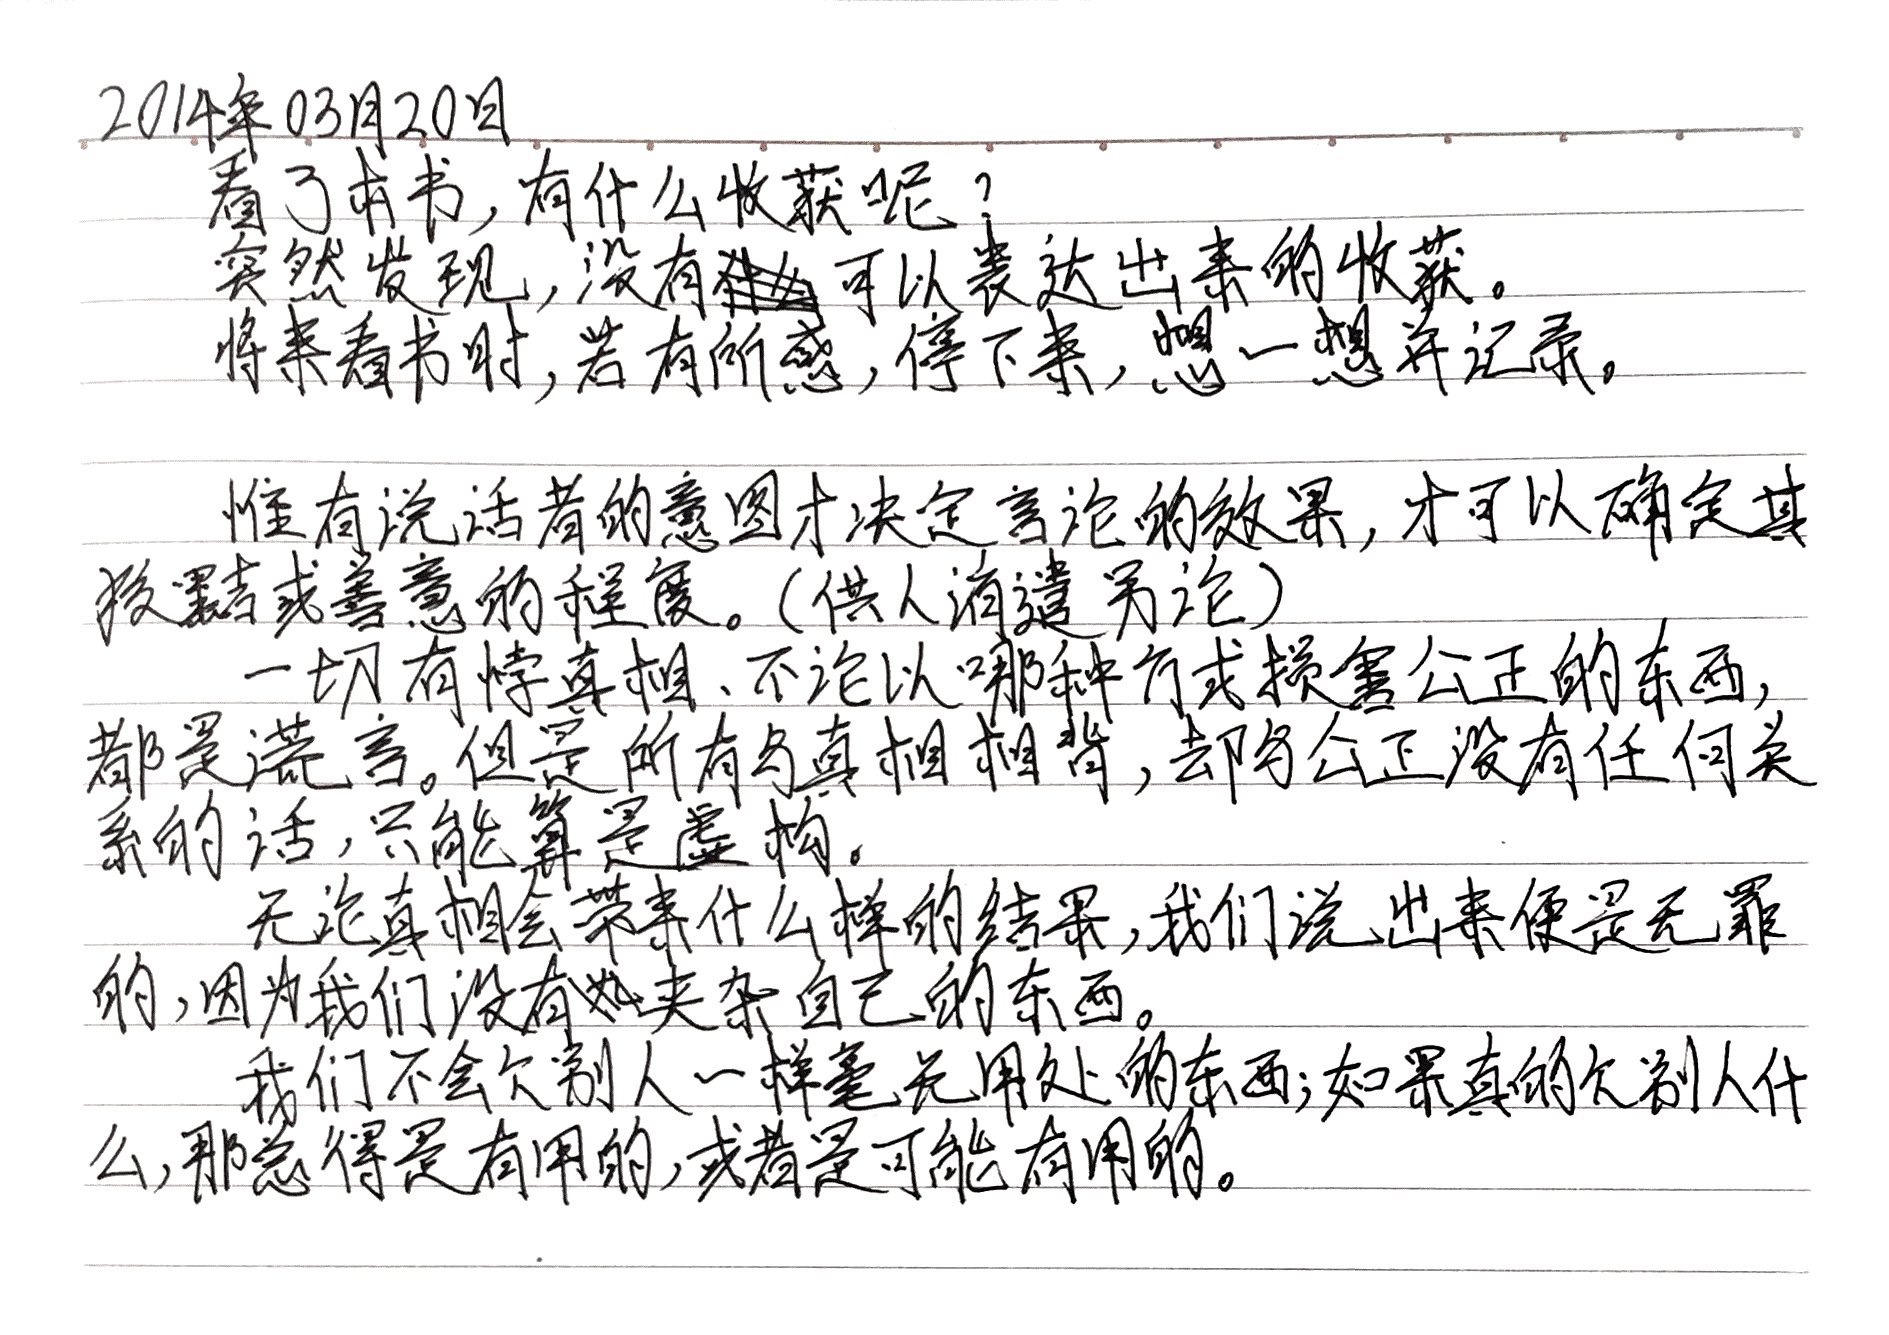 2014年03月20日
看了本书，有什么收获呢？
突然发现，没有可以表达出来的收获。
将来看书时，若有所感，停下来，想一想并记录。
惟有说话者的意图才决定言论的效果，才可以确定其
狡黠或善意的程度。（供人消遣另论）
一切有悖真相、不论以哪种方式损害公正的东西，
都是谎言。但是所有与真相相背，却与公正没有任何关
系的话，只能算是虚构。
无论真相会带来什么样的结果，我们说出来便是无罪
的，因为我们没有夹杂自己的东西。
我们不会欠别人一样毫无用处的东西；如果真的欠别人什
么，那总得是有用的，或者是可能有用的。